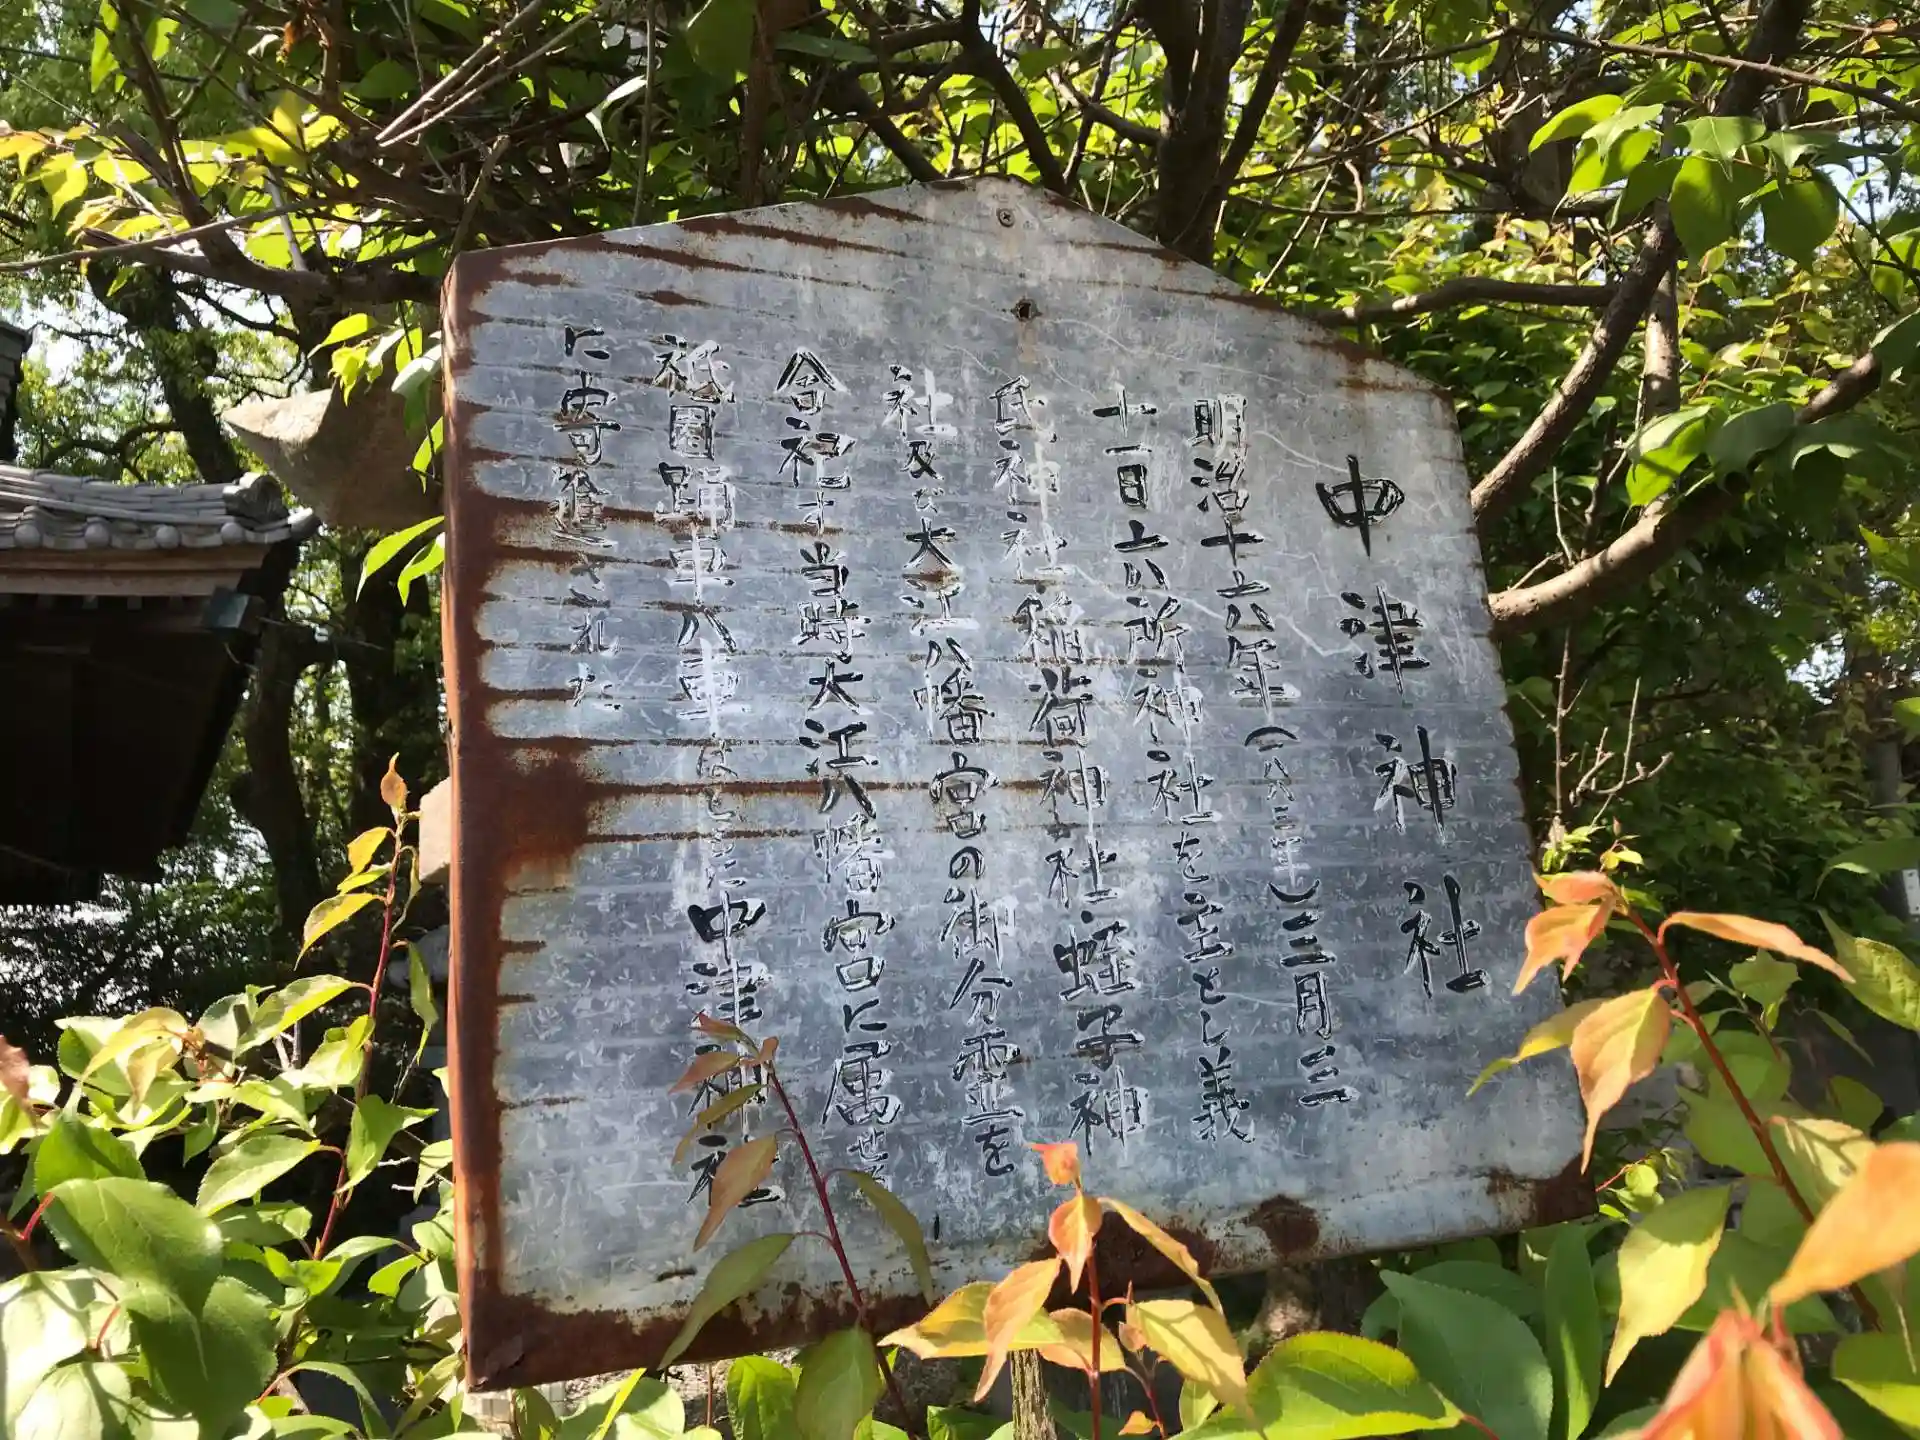 中津神社
明治十六年(一八八三年)三月三
十一日六所神社を主とし義
氏神社稲荷神社蛭子神
社及び大江八幡宮の御分霊を
合祀す当時大江八幡宮に属せ
祇園踊車八車はときに中津神社
に寄進された